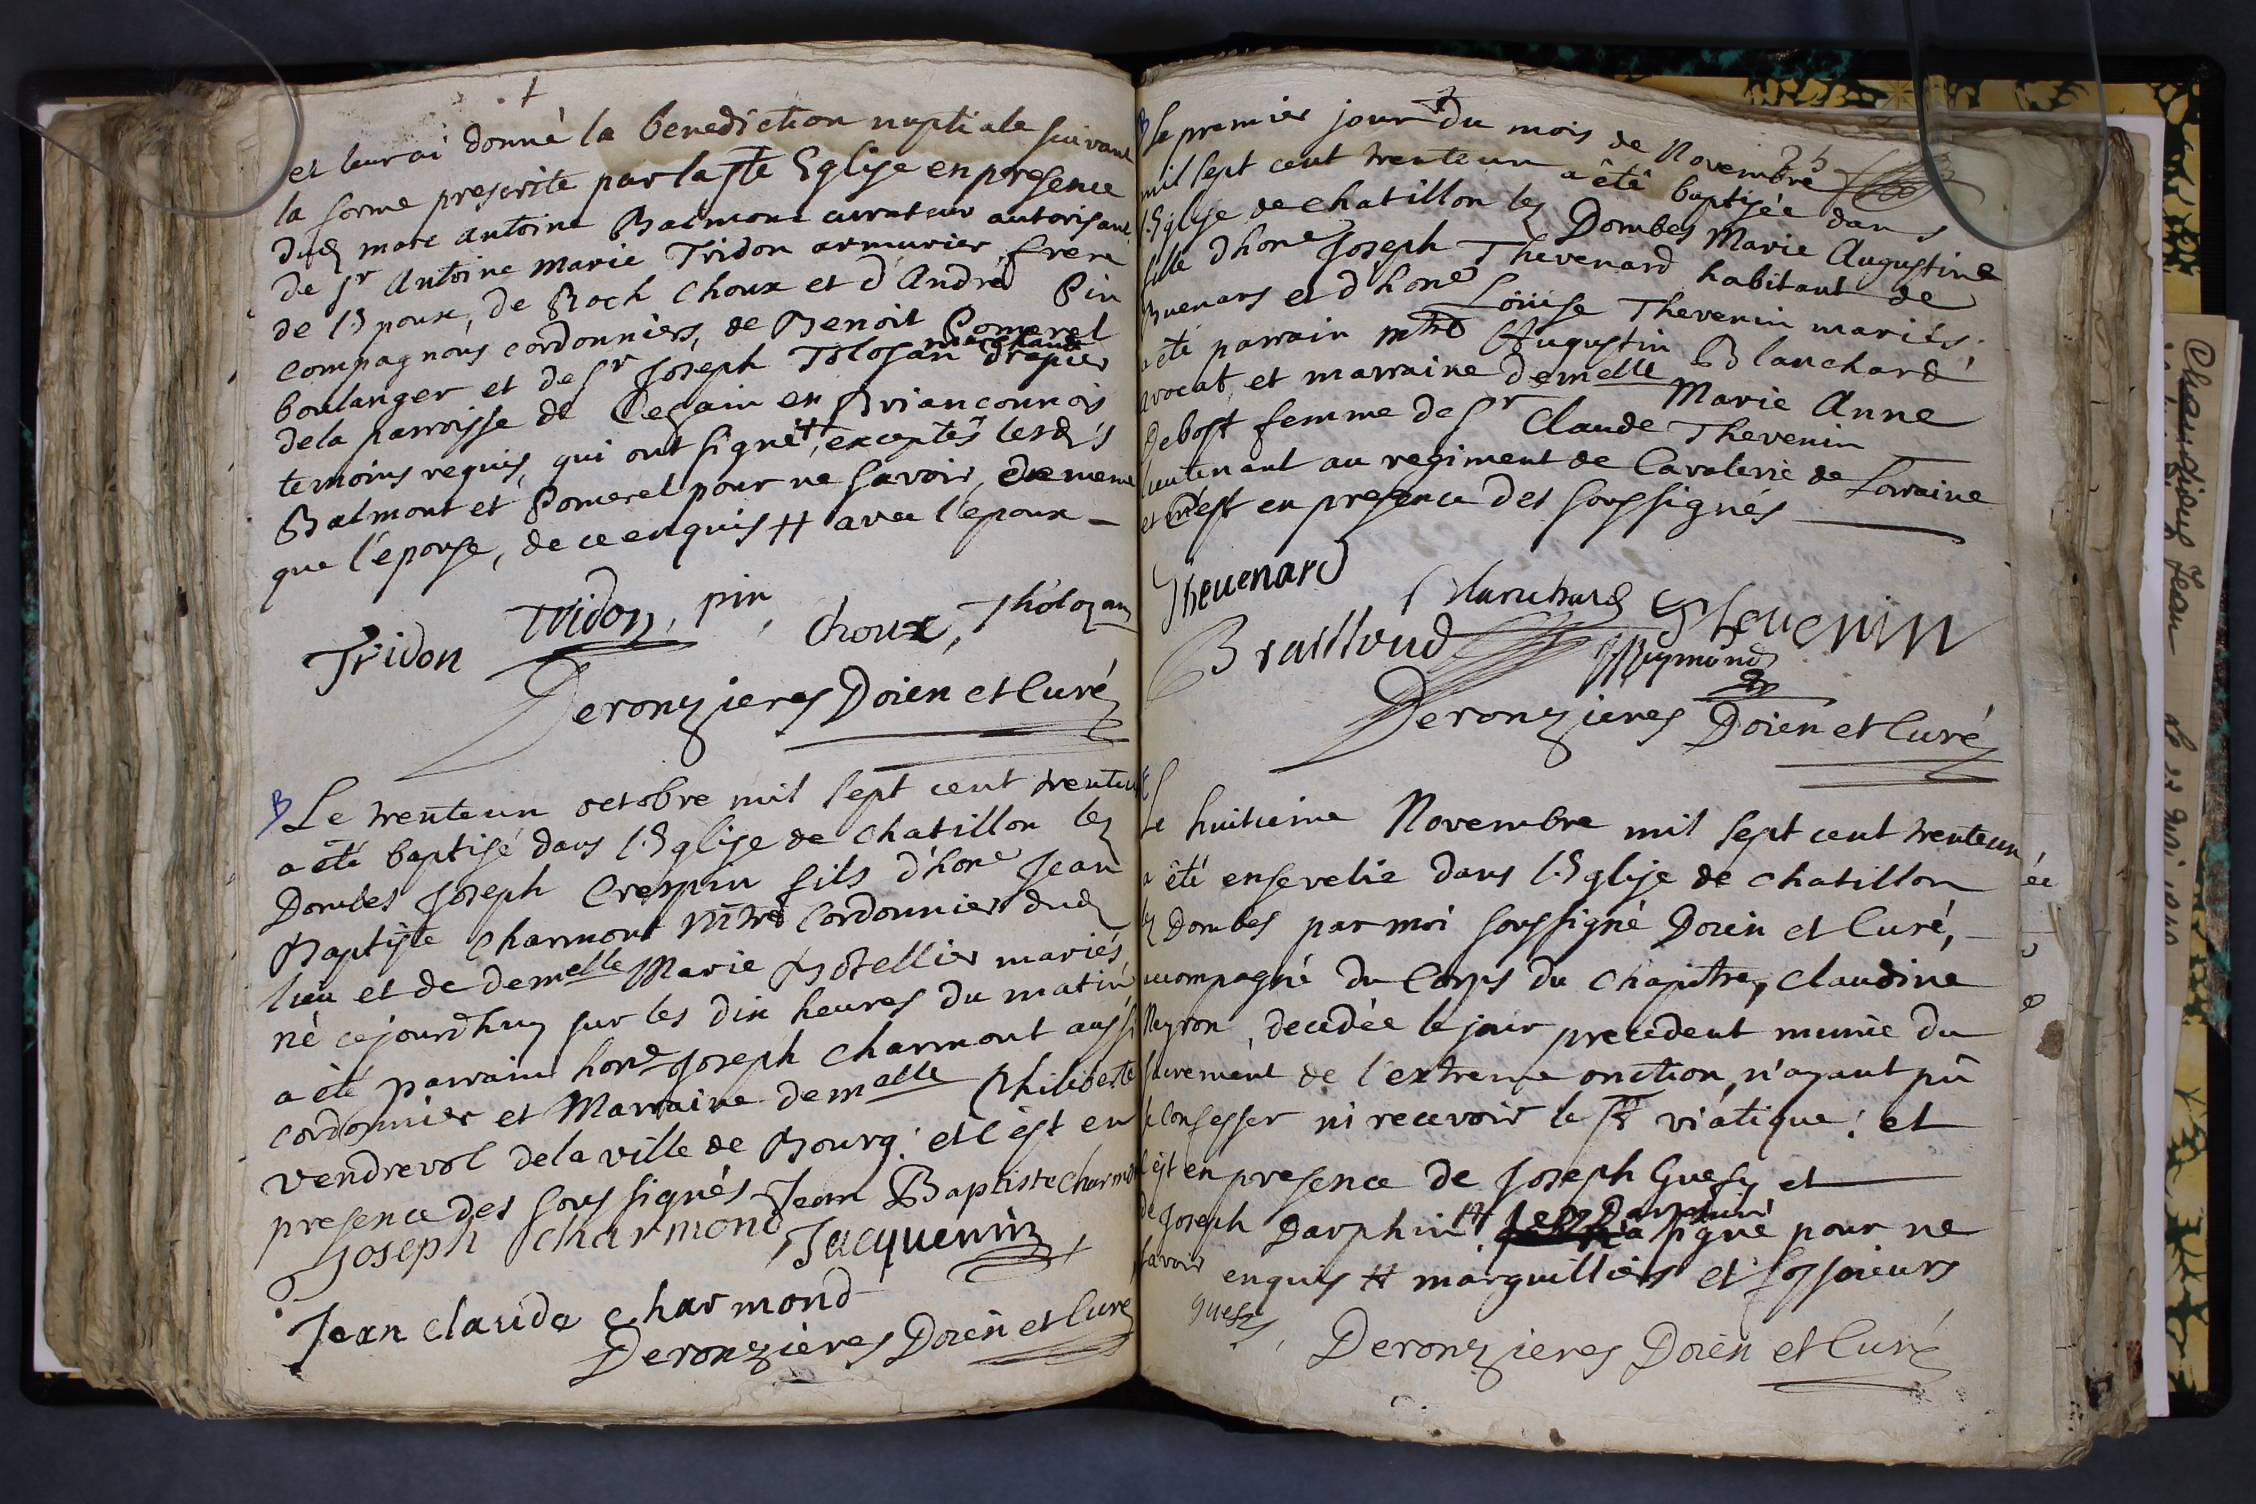 et leur ai donné la benediction nuptiale suivant
la forme prescrite par la ste Eglise en presence
dud marc antoine Balmont curateur autorisant
de sr Antoine Marie Tridon armurier, frere
de l'Epoux, de Roch Choux et d'André Pin
compagnons cordonniers, de Benoit Pomerel
boulanger et de sr Joseph Tolosan marchand drapier
de la parroisse de Cezain en Brianconnois
temoins requis, qui ont signé #, exceptés lesdis
Balmont et Pomerel pour ne savoir, de meme
que l'epouse, de ce enquis # avec l'epoux —
Tridon
Tridon, pin, Choux, Tholozan
Deronzieres Doien et Curé
B Le trenteun octobre mil sept cent trenteun
a été baptisé dans l'Eglise de Chatillon les
Dombes Joseph Crespin fils d'hone Jean
Baptiste Charmont mtre Cordonnier dud
lieu et de demelle Marie Hotellier mariés,
né ce jourdhuy sur les dix heures du matin
a été parrain hone Joseph Charmont aussi
cordonnier et Marraine demelle Philiberte
vendrevol de la ville de Bourg. et c'est en
presence des soussignés Jean Baptiste Charmon
Joseph Charmond
Jacquemin
Jean claude charmond
Deronzieres Doien et Curé
25
B Le premier jour du mois de Novembre
mil sept cent trenteun a été baptisée dans
l'Eglise de Chatillon les Dombes Marie Augustine
fille d'hone Joseph Thevenard habitant de
Buenans et d'hone Loüise Thevenin mariés.
a été parrain mtre Augustin Blanchard
avocat, et marraine demelle Marie Anne
Debost femme de sr Claude Thevenin
lieutenant au regiment de Cavalerie de Lorraine
et c'est en presence des soussignés
Thevenard
Blanchard Thevenin
Brailloud
Reymond
Deronzieres Doien et Curé
Le huitieme Novembre mil sept cent trenteun
a été ensevelie dans l'Eglise de Chatillon
les Dombes par moi soussigné Doien et Curé,
accompagné du Corps du Chapitre, Claudine
Neyron, decedée le jour precedent munie du
sacrement de l'extreme onction, n'ayant pû
se Confesser ni recevoir le st viatique: et
c'est en presence de Joseph Guesy et
de Joseph Darphin # Darphin a signé pour ne
savoir enquis # marguilliers et fossoieurs
guesy
Deronzieres Doien et Curé